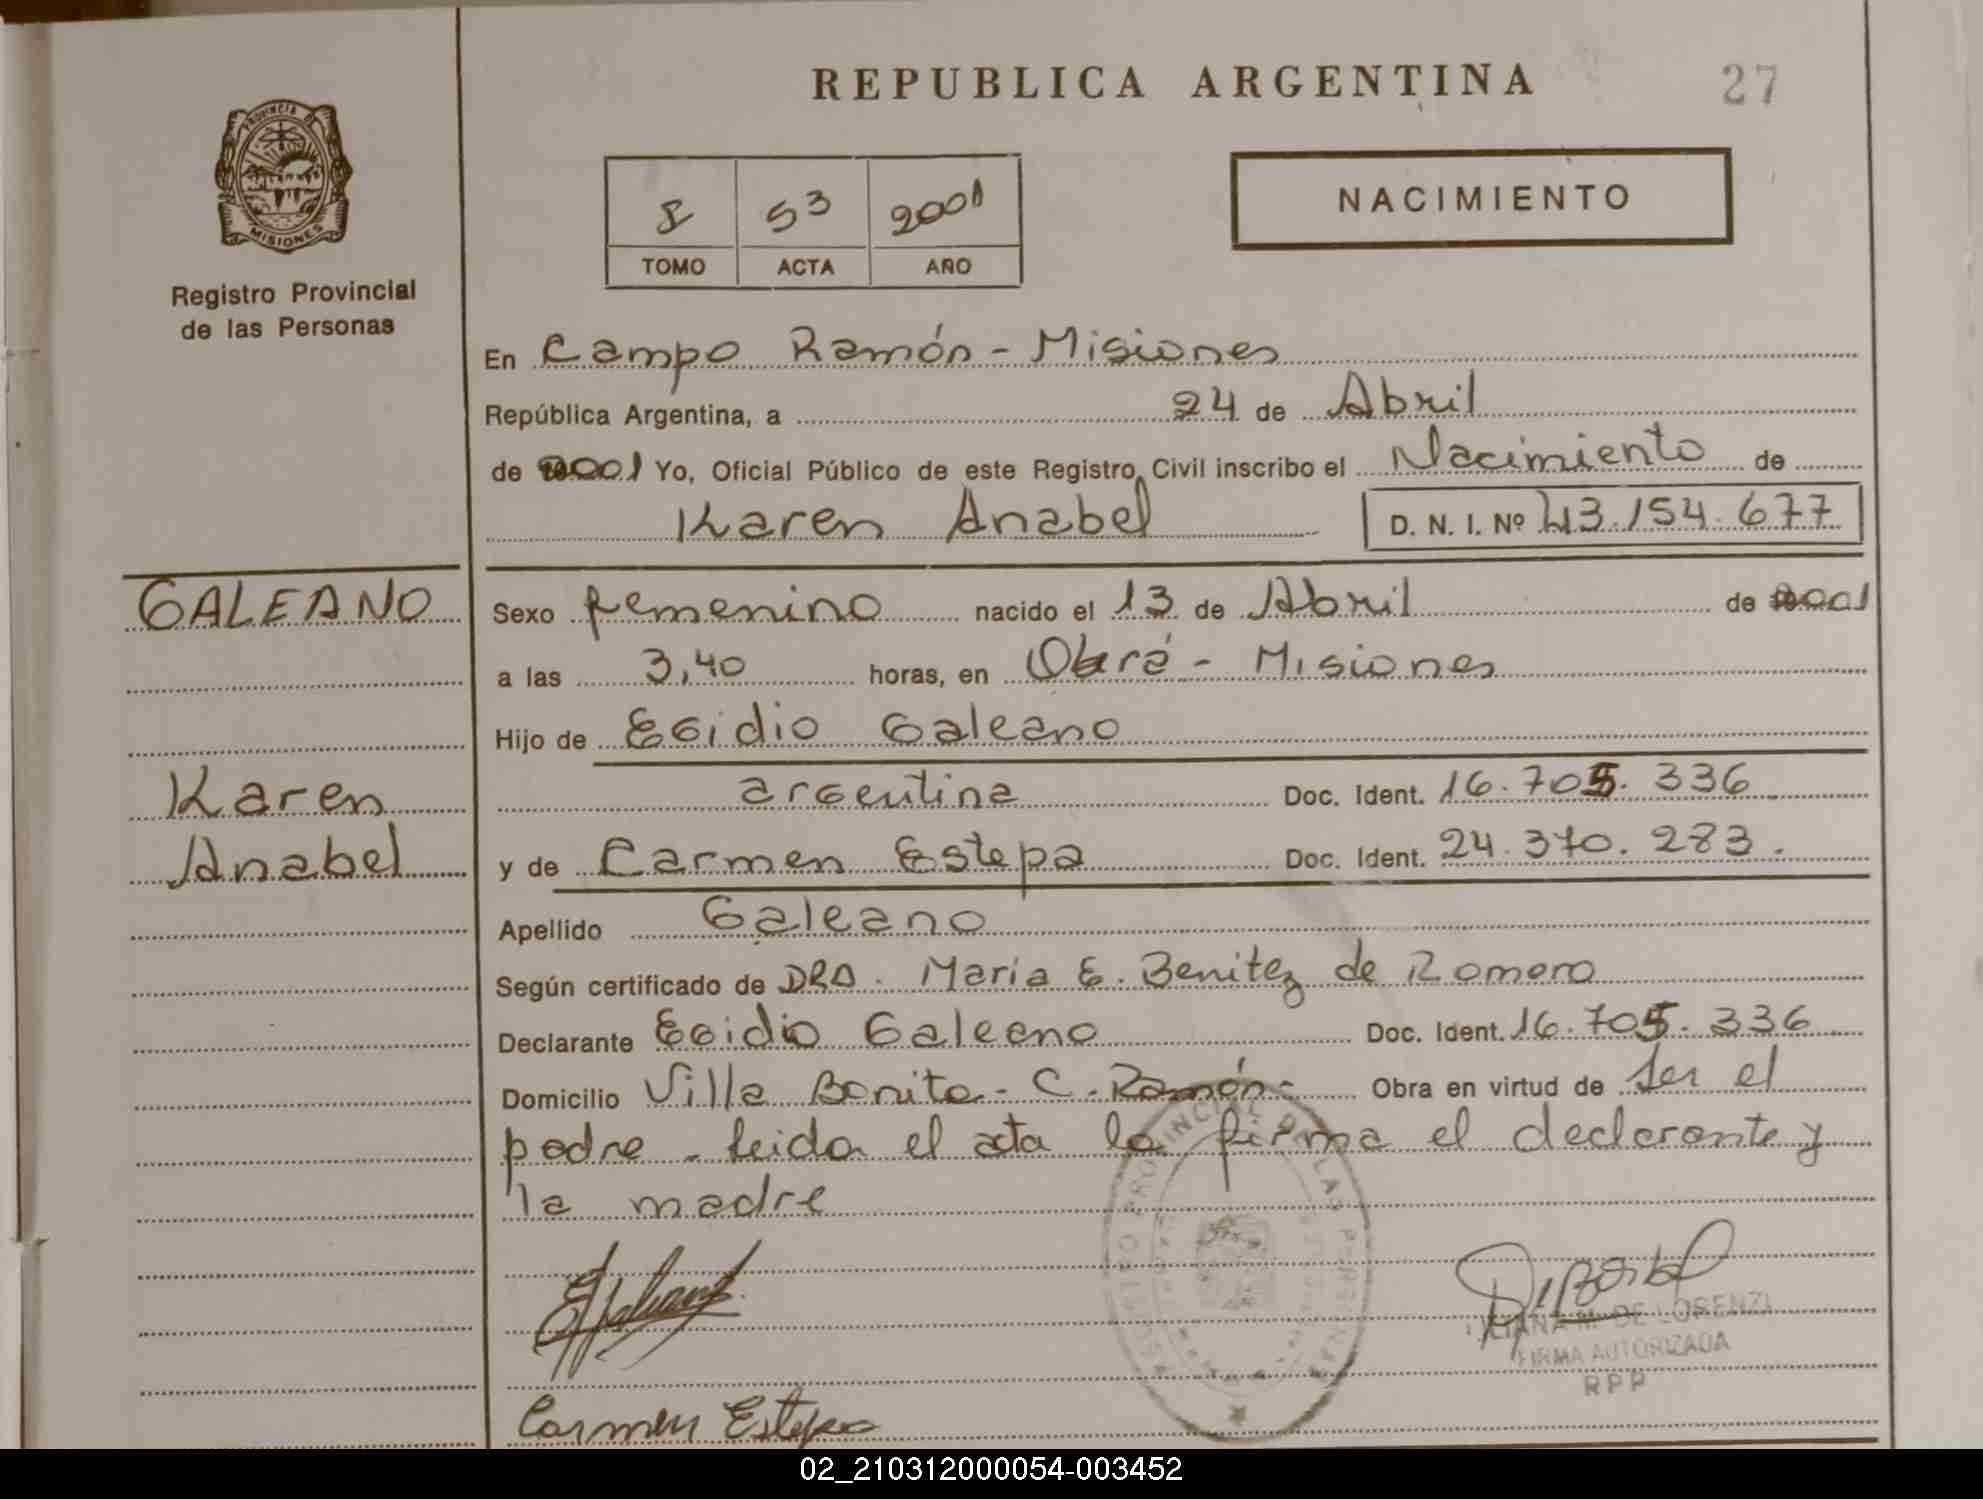 REPUBLICA ARGENTINA
27
PROVINCIA DE
MISIONES
Registro Provincial
de las Personas
8 53 2001
TOMO ACTA AÑO
NACIMIENTO
En Campo Ramón - Misiones
República Argentina, a 24 de Abril
de 2001 Yo, Oficial Público de este Registro Civil inscribo el Nacimiento de
Karen Anabel D. N. I. Nº 43.154.677
GALEANO
Karen
Anabel
Sexo femenino nacido el 13 de Abril de 2001
a las 3,40 horas, en Oberá - Misiones
Hijo de Egidio Galeano
argentina Doc. Ident. 16.705.336
y de Carmen Estepa Doc. Ident. 24.370.283.
Apellido Galeano
Según certificado de DRA. Maria E. Benitez de Romero
Declarante Egidio Galeano Doc. Ident. 16.705.336
Domicilio Villa Bonita - C. Ramón - Obra en virtud de ser el
padre - leida el acta la firma el declarante y
la madre
REGISTRO PROVINCIAL DE LAS PERSONAS
LILIANA M. DE LORENZI
FIRMA AUTORIZADA
RPP
Carmen Estepa
02_210312000054-003452